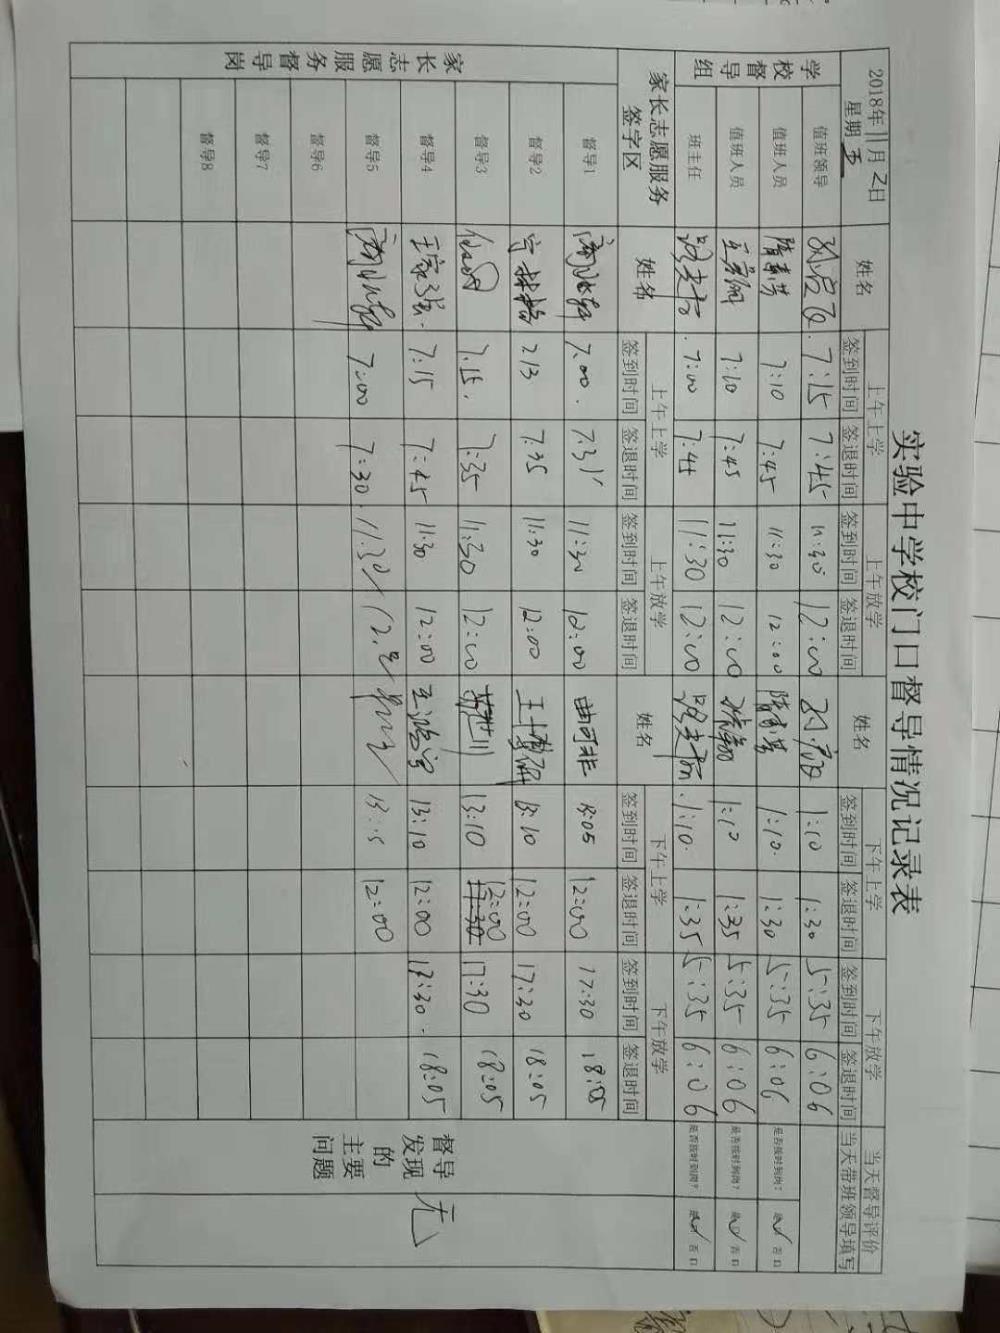 实验中学校门口督导情况记录表
2018年11月2日 星期五 姓名 上午上学 上午放学 姓名 下午上学 下午放学 当天督导评价
签到时间 签退时间 签到时间 签退时间 签到时间 签退时间 签到时间 签退时间 当天带班领导填写
学校督导组
值班领导 7:15 7:45 11:30 12:00 1:10 1:30 5:35 6:06
值班人员 7:10 7:45 11:30 12:00 1:10 1:30 5:35 6:06 是否按时到岗? 是 否口
值班人员 7:10 7:45 11:30 12:00 1:10 1:35 5:35 6:06 是否按时到岗? 是 否口
班主任 7:00 7:45 11:30 12:00 1:10 1:35 5:35 6:06 是否按时到岗? 是 否口
家长志愿服务签字区 姓名 上午上学 上午放学 姓名 下午上学 下午放学
签到时间 签退时间 签到时间 签退时间 签到时间 签退时间 签到时间 签退时间
家长志愿服务督导岗
督导1 7.00 7:31 11:30 12:00 曲可非 13:05 12:00 17:30 18:05
督导2 7:35 11:30 12:00 13:10 12:00 17:30 18:05
督导3 7.15 7:35 11:30 12:00 13:10 12:00 17:30 18:05
督导4 王家强 7:15 7:45 11:30 12:00 13:10 12:00 17:30 18:05
督导5 7:00 7:30 11:30 12:00
督导6
督导7
督导8
督导发现的主要问题 无